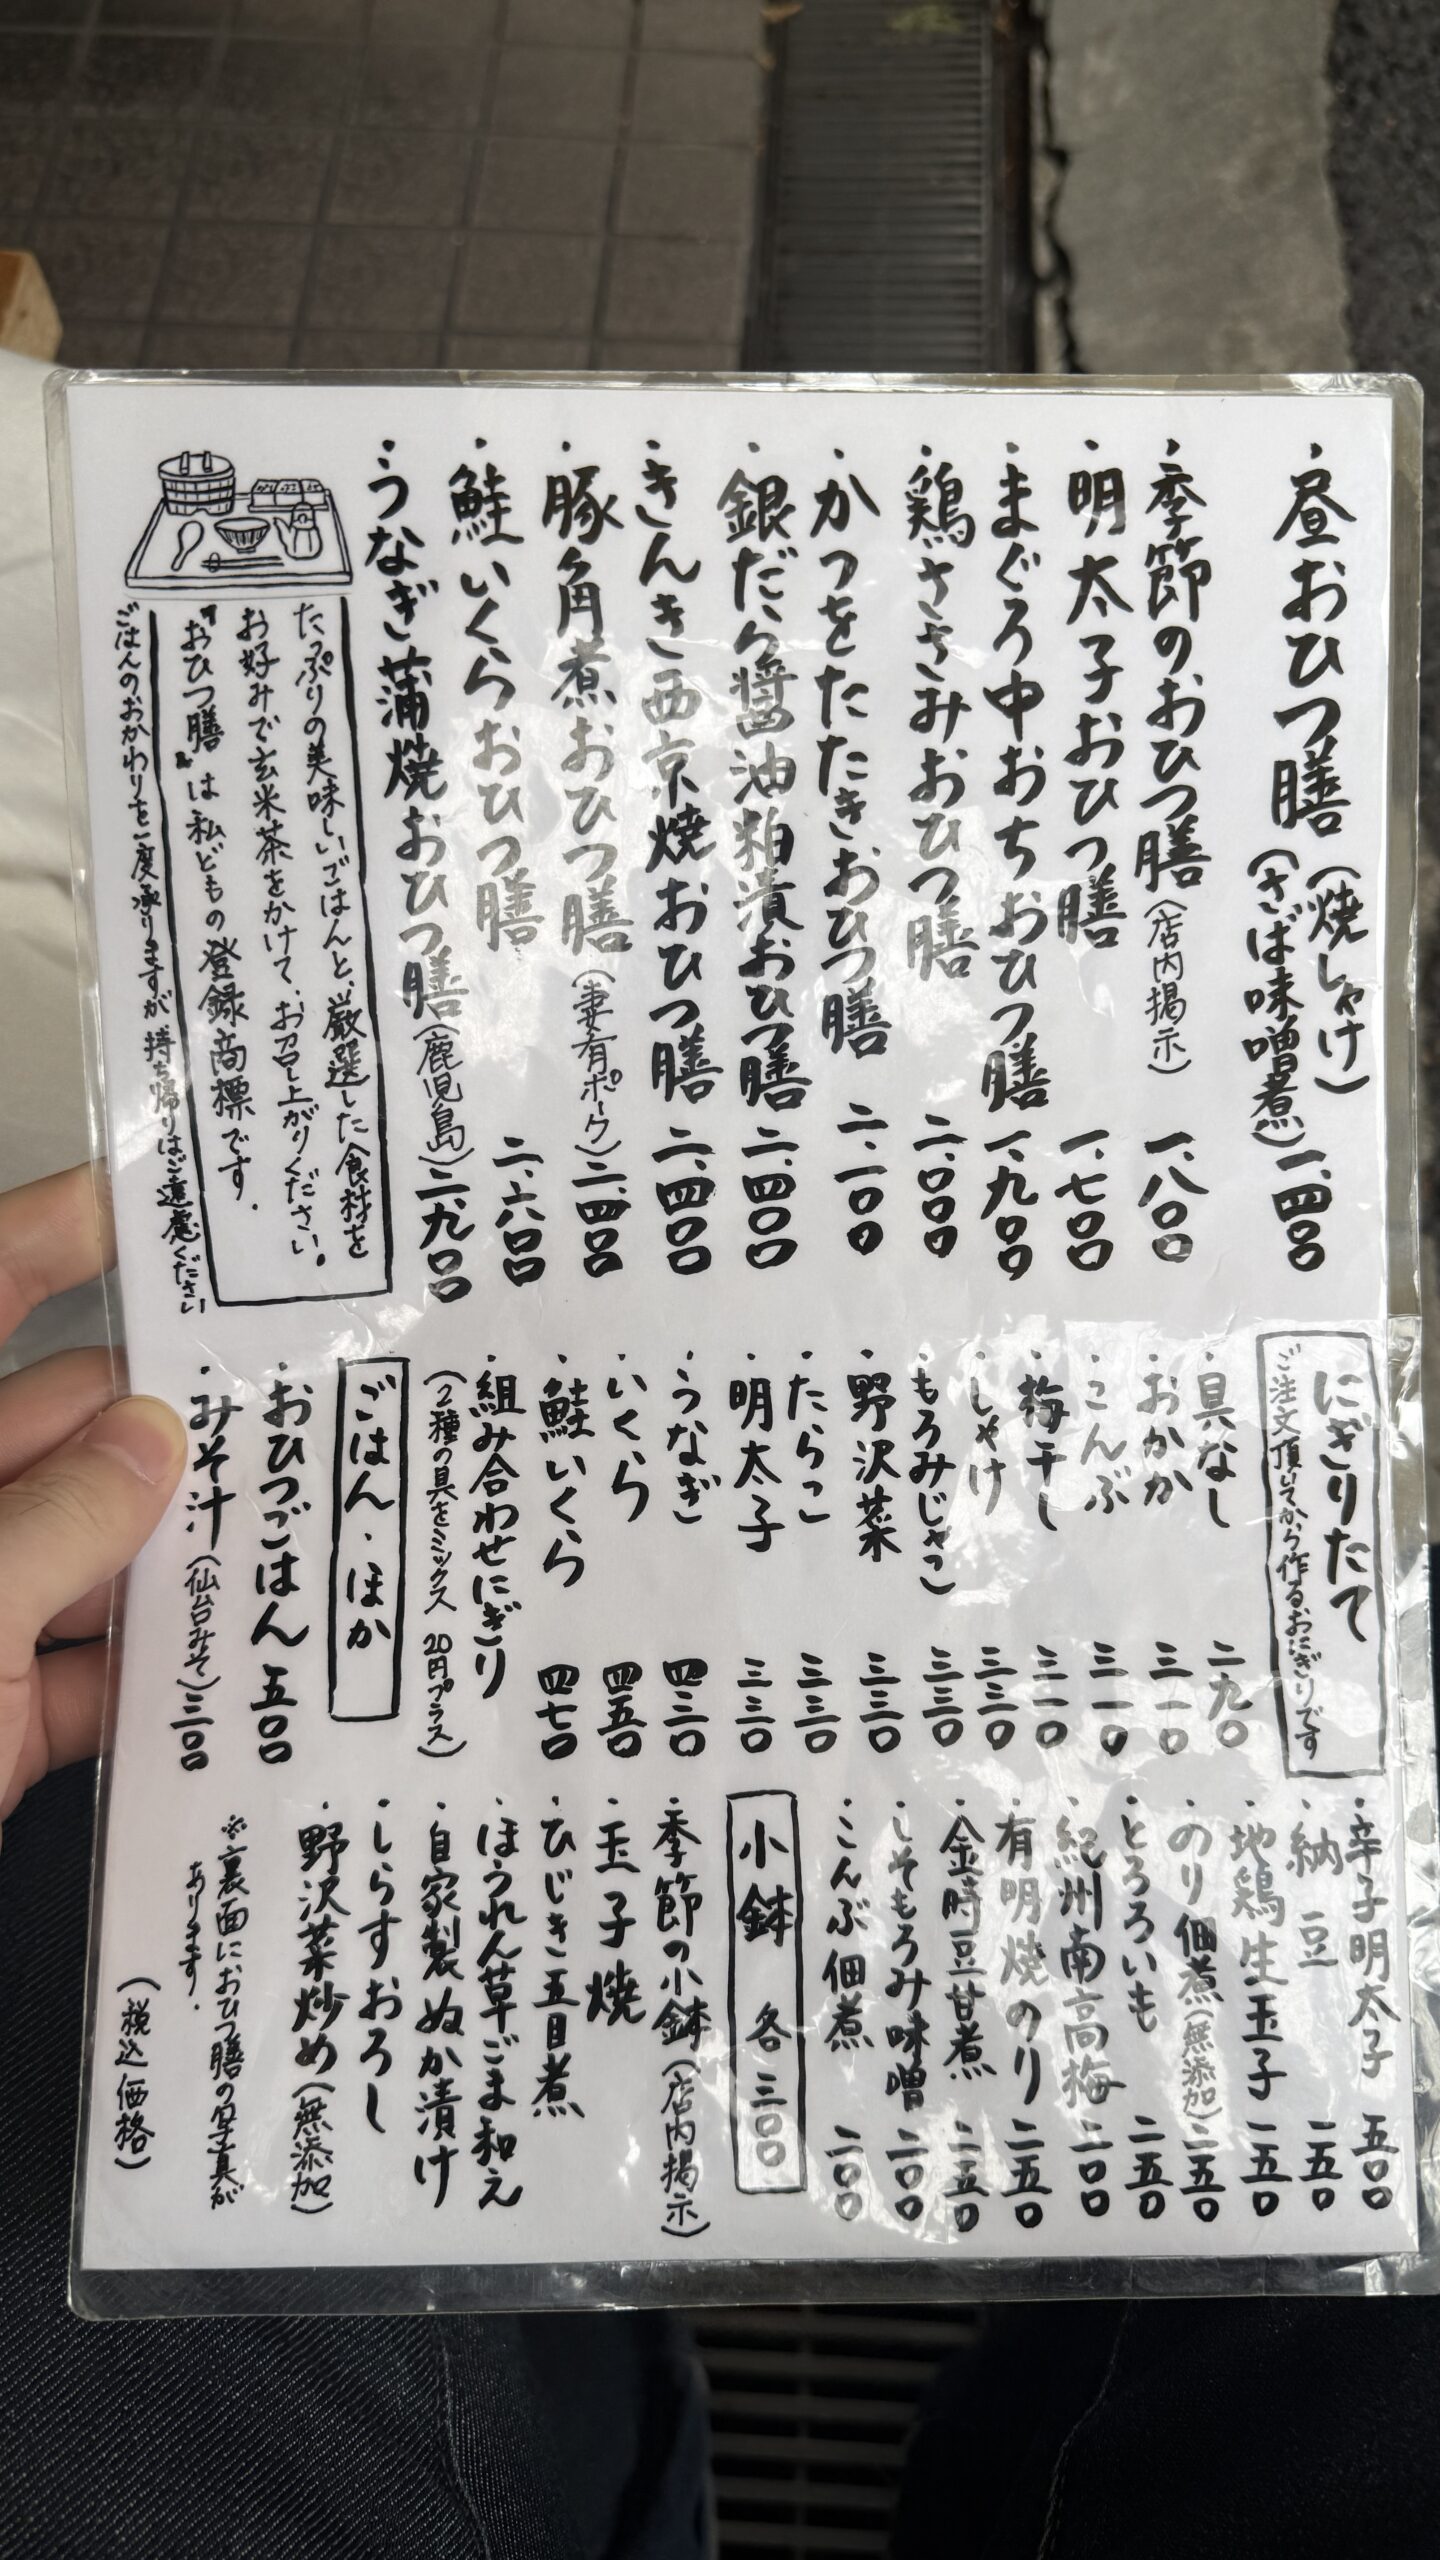 ・昼おひつ膳(焼しゃけ)
(さば味噌煮)一、四〇〇
・季節のおひつ膳(店内掲示)一、八〇〇
・明太子おひつ膳 一、七〇〇
・まぐろ中おちおひつ膳 一、九〇〇
・鶏ささみおひつ膳 二、〇〇〇
・かつをたたきおひつ膳 二、一〇〇
・銀だら醤油粕漬おひつ膳 二、四〇〇
・きんき西京焼おひつ膳 二、四〇〇
・豚角煮おひつ膳(妻有ポーク)二、四〇〇
・鮭いくらおひつ膳 二、六〇〇
・うなぎ蒲焼おひつ膳(鹿児島)二、九〇〇
たっぷりの美味しいごはんと、厳選した食材を
お好みで玄米茶をかけて、お召し上がりください。
"おひつ膳"は私どもの登録商標です。
ごはんのおかわりを一度承りますが持ち帰りはご遠慮ください
にぎりたて
ご注文頂いてから作るおにぎりです
・具なし 二九〇
・おかか 三一〇
・こんぶ 三一〇
・梅干し 三一〇
・しゃけ 三三〇
・もろみじゃこ 三三〇
・野沢菜 三三〇
・たらこ 三三〇
・明太子 三三〇
・うなぎ 四三〇
・いくら 四五〇
・鮭いくら 四七〇
・組み合わせにぎり
(2種の具をミックス 20円プラス)
ごはん・ほか
・おひつごはん 五〇〇
・みそ汁(仙台みそ)三〇〇
・辛子明太子 五〇〇
・納豆 二五〇
・地鶏生玉子 二五〇
・のり佃煮(無添加)二五〇
・とろろいも 二五〇
・紀州南高梅 二〇〇
・有明焼のり 二五〇
・金時豆甘煮 二五〇
・しそもろみ味噌 二〇〇
・こんぶ佃煮 二〇〇
小鉢 各三〇〇
・季節の小鉢(店内掲示)
・玉子焼
・ひじき五目煮
・ほうれん草ごま和え
・自家製ぬか漬け
・しらすおろし
・野沢菜炒め(無添加)
※裏面におひつ膳の写真が
あります。
(税込価格)